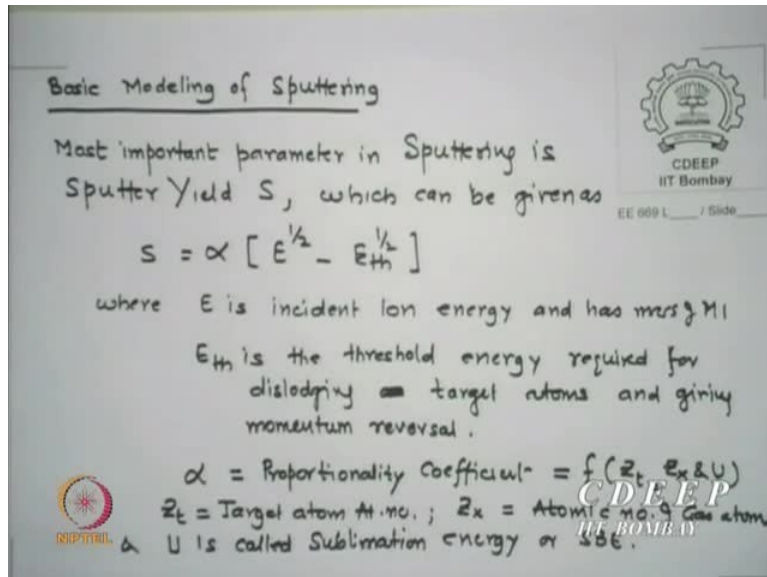 Basic Modeling of Sputtering
Most important parameter in Sputtering is
Sputter Yield S, which can be given as
S = α [ E^1/2 - Eth^1/2 ]
where E is incident Ion energy and has mass of M1
Eth is the threshold energy required for
dislodging target atoms and giving
momentum reversal.
α = Proportionality Coefficient = f (Zt, Zx & U)
Zt = Target atom At. no. ; Zx = Atomic no. of Gas atom
& U is called Sublimation energy or SBE.
CDEEP
IIT Bombay
EE 669 L____ / Slide____
NPTEL
CDEEP
IIT BOMBAY